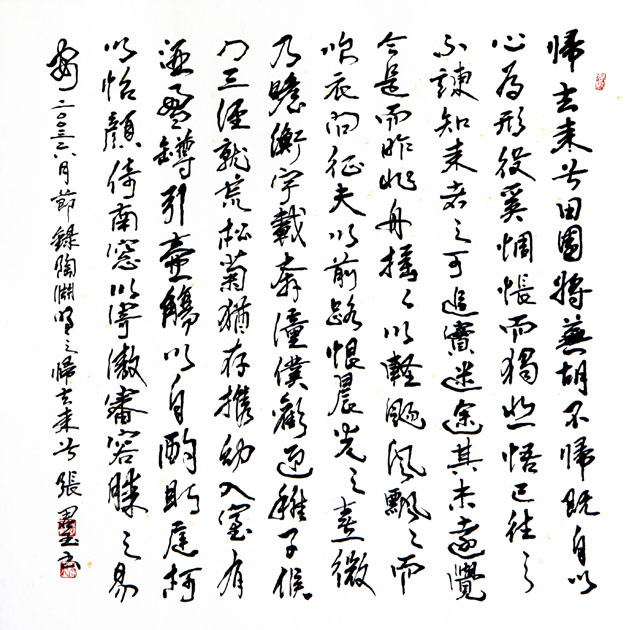 帰去来兮田園将蕪胡不帰既自以
心為形役奚惆悵而獨悲悟已往之
不諫知来者之可追實迷途其未遠覺
今是而昨非舟摇〻以軽颺風飄〻而
吹衣問征夫以前路恨晨光之熹微
乃瞻衡宇載奔僮僕歡迎稚子候
門三徑就荒松菊猶存携幼入室有
酒盈罇引壺觴以自酌眄庭柯
以怡顔倚南窓以寄傲審容膝之易
安 月節録陶淵明之帰去来兮張